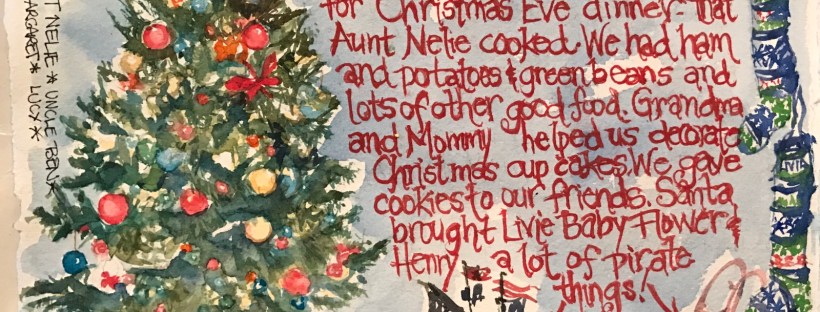 for Christmas Eve dinner that
Aunt Nelie cooked. We had ham
and potatoes & green beans and
lots of other good food. Grandma
and Mommy helped us decorate
Christmas cup cakes. We gave
cookies to our friends. Santa
brought Livie Baby Flower &
Henry a lot of pirate
things!
T NELIE * UNCLE BEN *
MARGARET * LUCY *
LIVIE